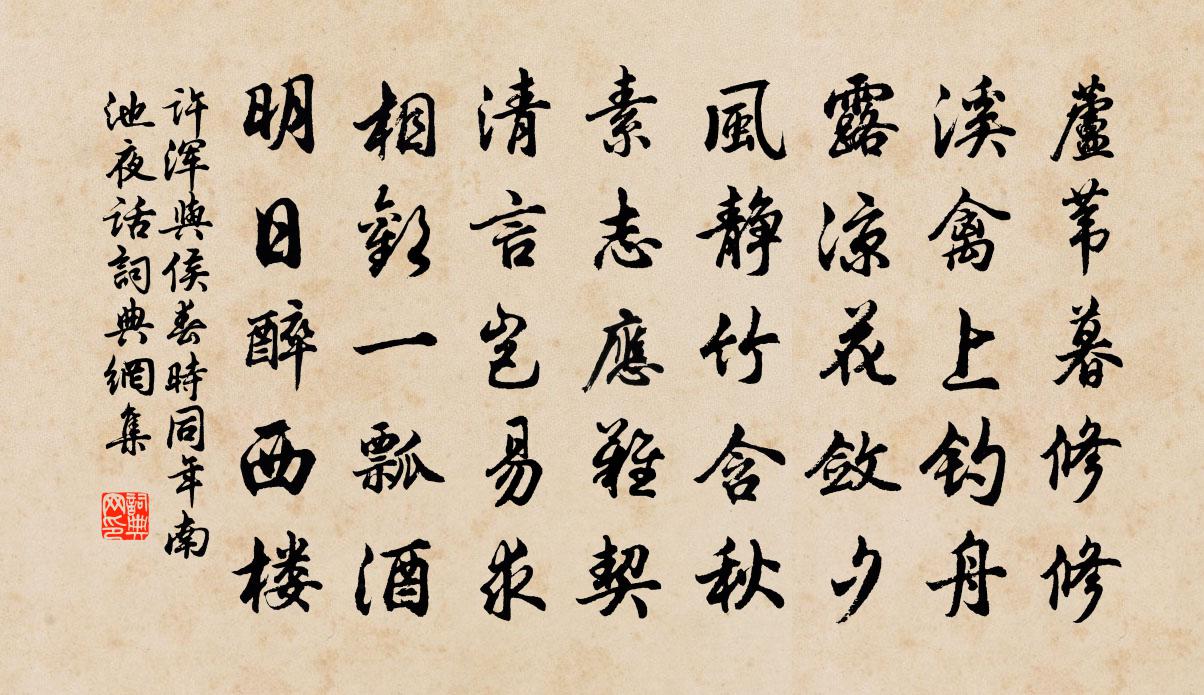 蘆葦暮修修
溪禽上釣舟
露涼花斂夕
風静竹含秋
素志應難契
清言豈易求
相歡一瓢酒
明日醉西楼
許渾與侯春時同年南
池夜話詞典網集
詞典
网印